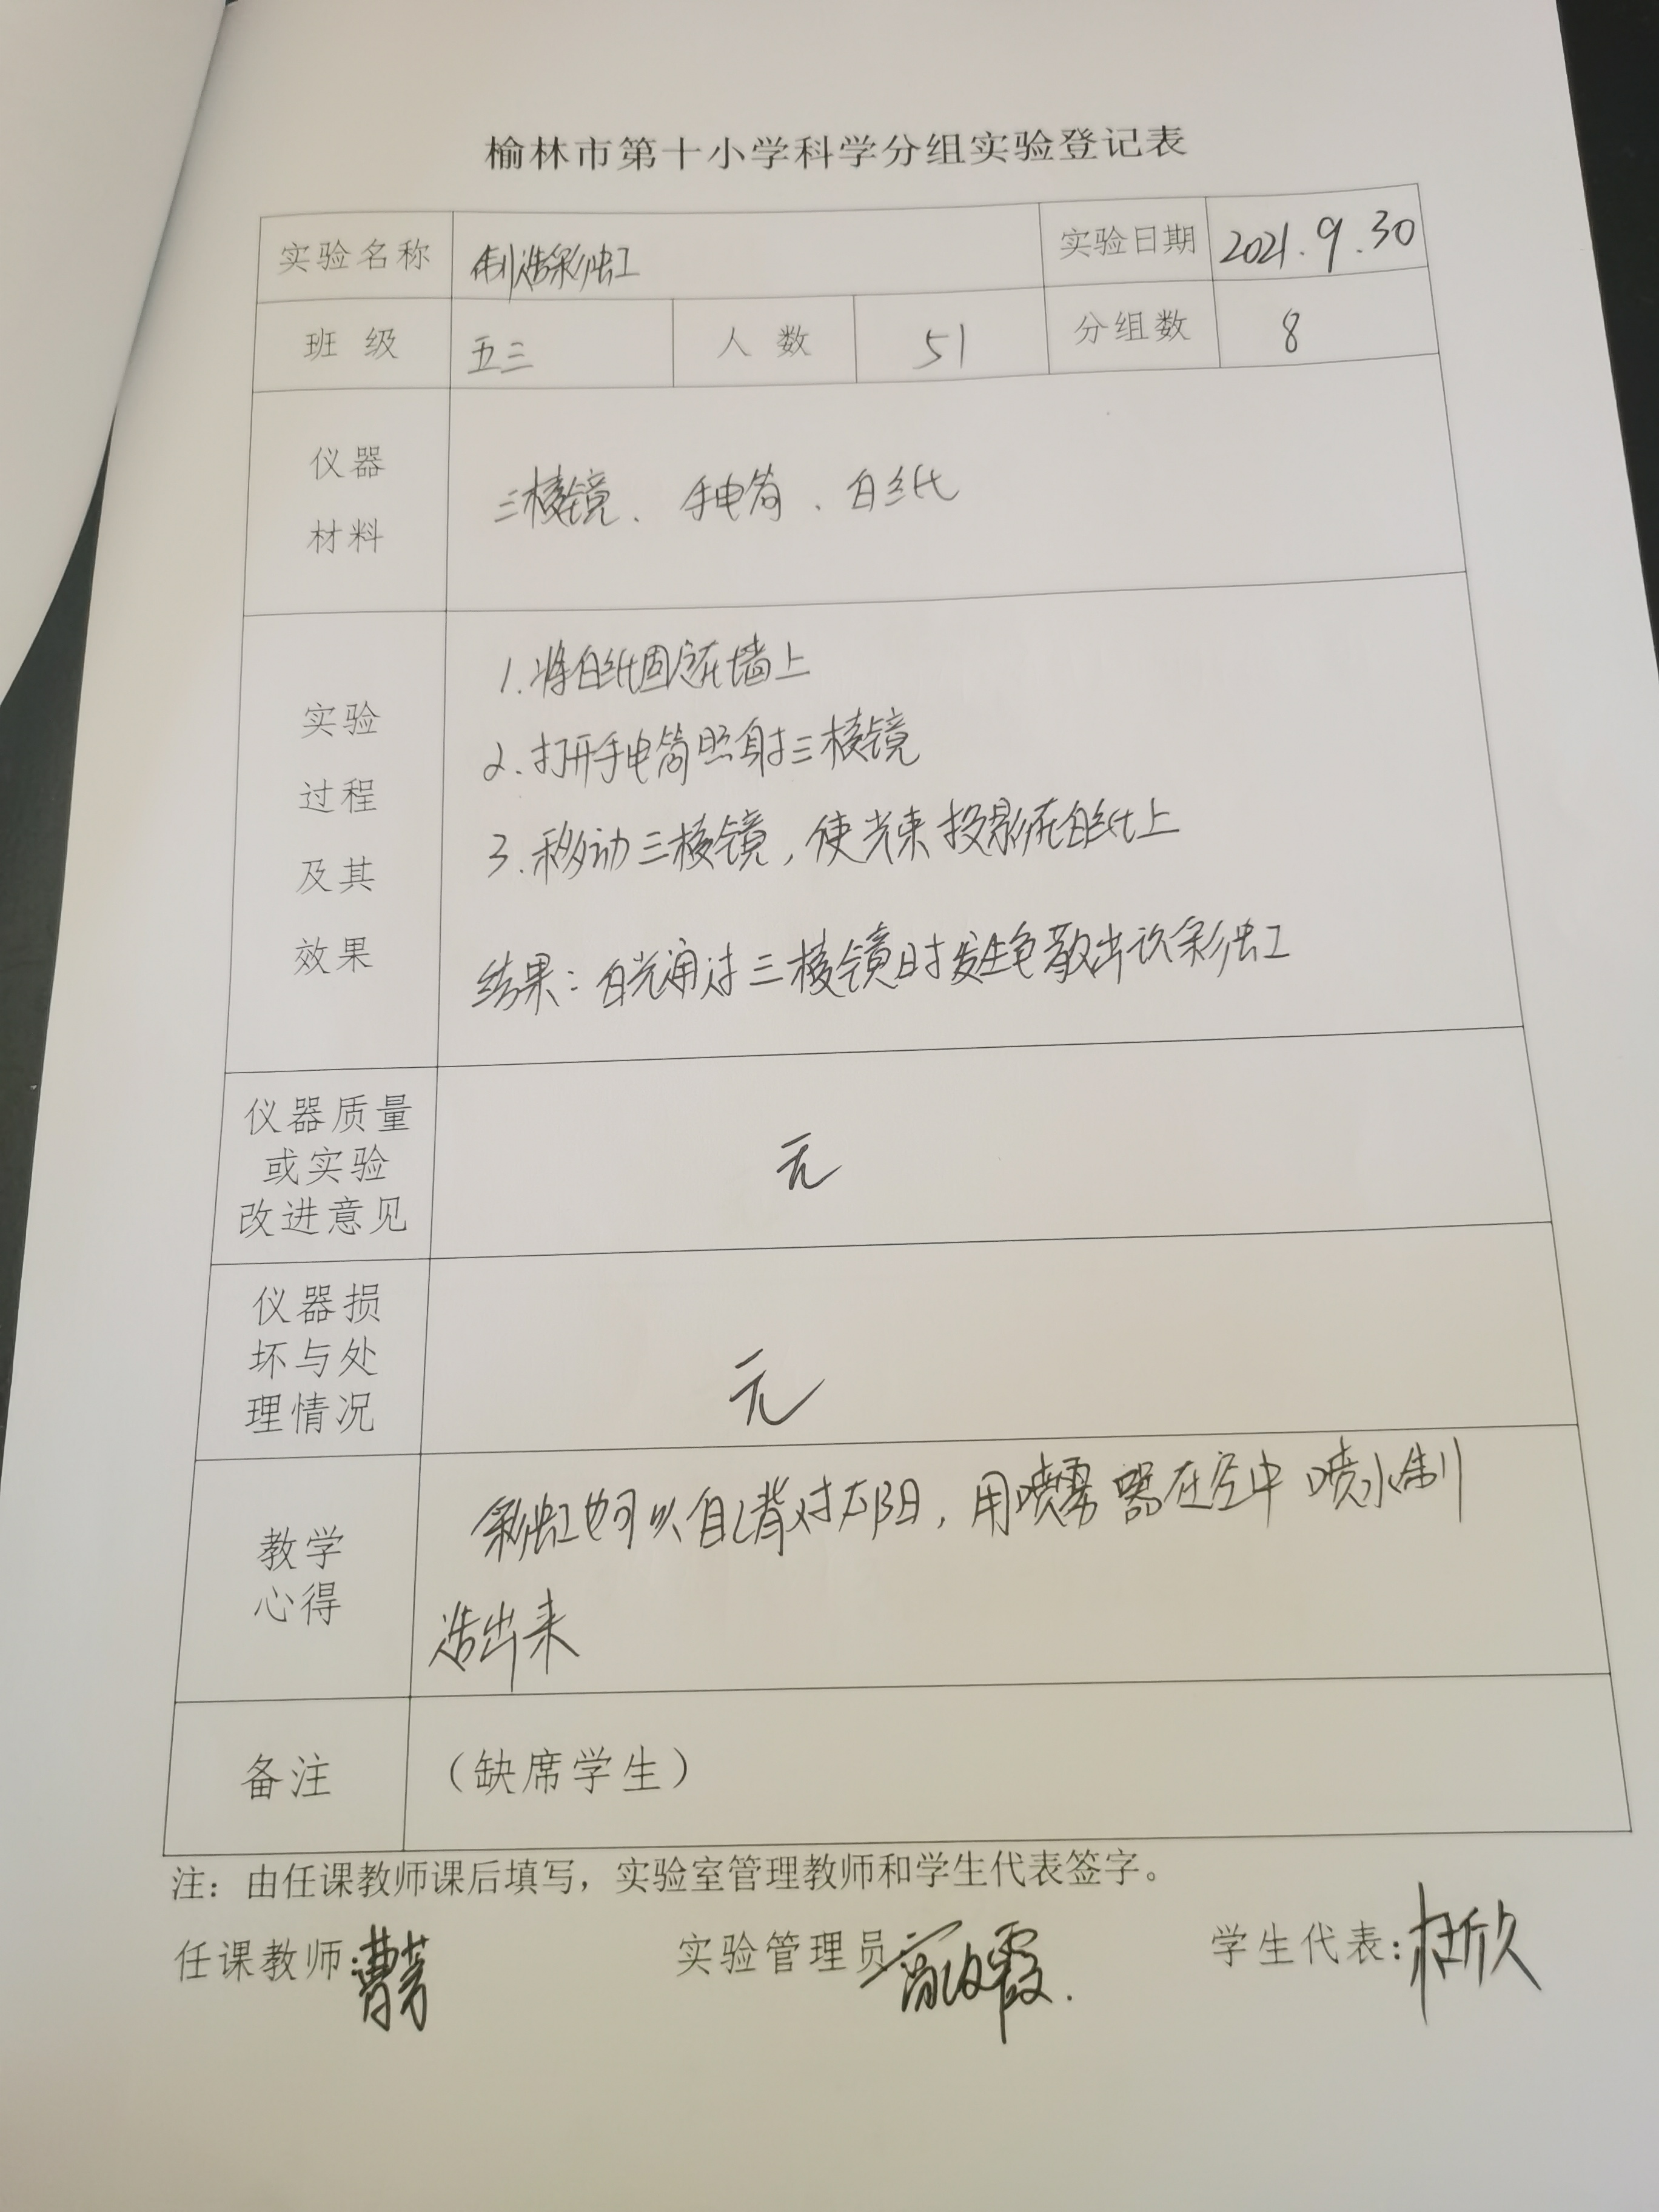 榆林市第十小学科学分组实验登记表
实验名称 制造彩虹 实验日期 2021.9.30
班 级 五三 人 数 51 分组数 8
仪器
材料
三棱镜、手电筒、白纸
实验
过程
及其
效果
1.将白纸固定在墙上
2.打开手电筒照射三棱镜
3.移动三棱镜,使光束投影在白纸上
结果:白光通过三棱镜时发生色散出议彩虹
仪器质量
或实验
改进意见
无
仪器损
坏与处
理情况
无
教学
心得
彩虹也可以自己背对太阳,用喷雾器在空中喷水制
造出来
备注 (缺席学生)
注:由任课教师课后填写,实验室管理教师和学生代表签字。
任课教师:曹芳 实验管理员 学生代表:杜欣